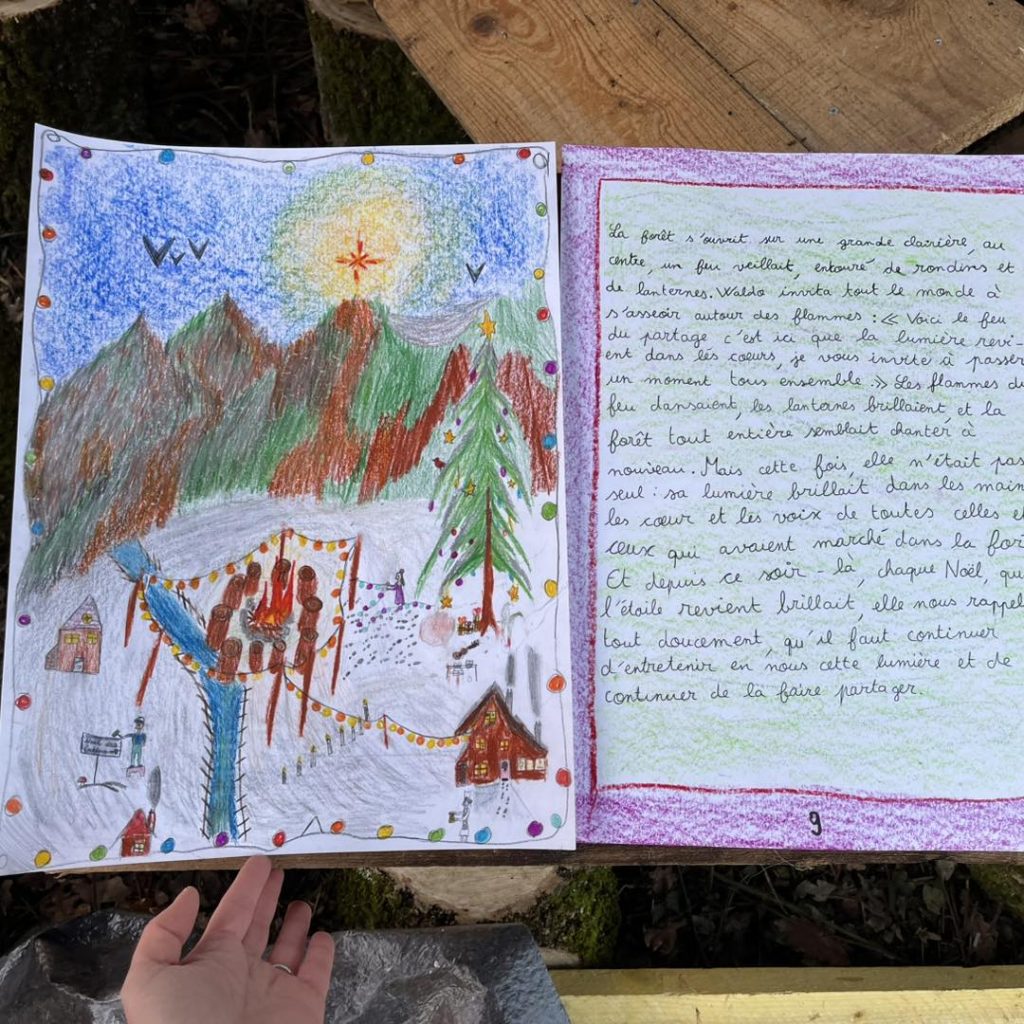 La forêt s'ouvrit sur une grande clairière, au
centre, un feu veillait, entouré de rondins et
de lanternes. Waldo invita tout le monde à
s'asseoir autour des flammes : « Voici le feu
du partage c'est ici que la lumière revi-
ent dans les cœurs, je vous invite à passer
un moment tous ensemble. » Les flammes du
feu dansaient, les lanternes brillaient, et la
forêt tout entière semblait chanter à
nouveau. Mais cette fois, elle n'était pas
seul : sa lumière brillait dans les mains
les cœur et les voix de toutes celles et
ceux qui avaient marché dans la for
Et depuis ce soir-là, chaque Noël, qu
l'étoile revient brillait, elle nous rappel
tout doucement, qu'il faut continuer
d'entretenir en nous cette lumière et de
continuer de la faire partager.
9